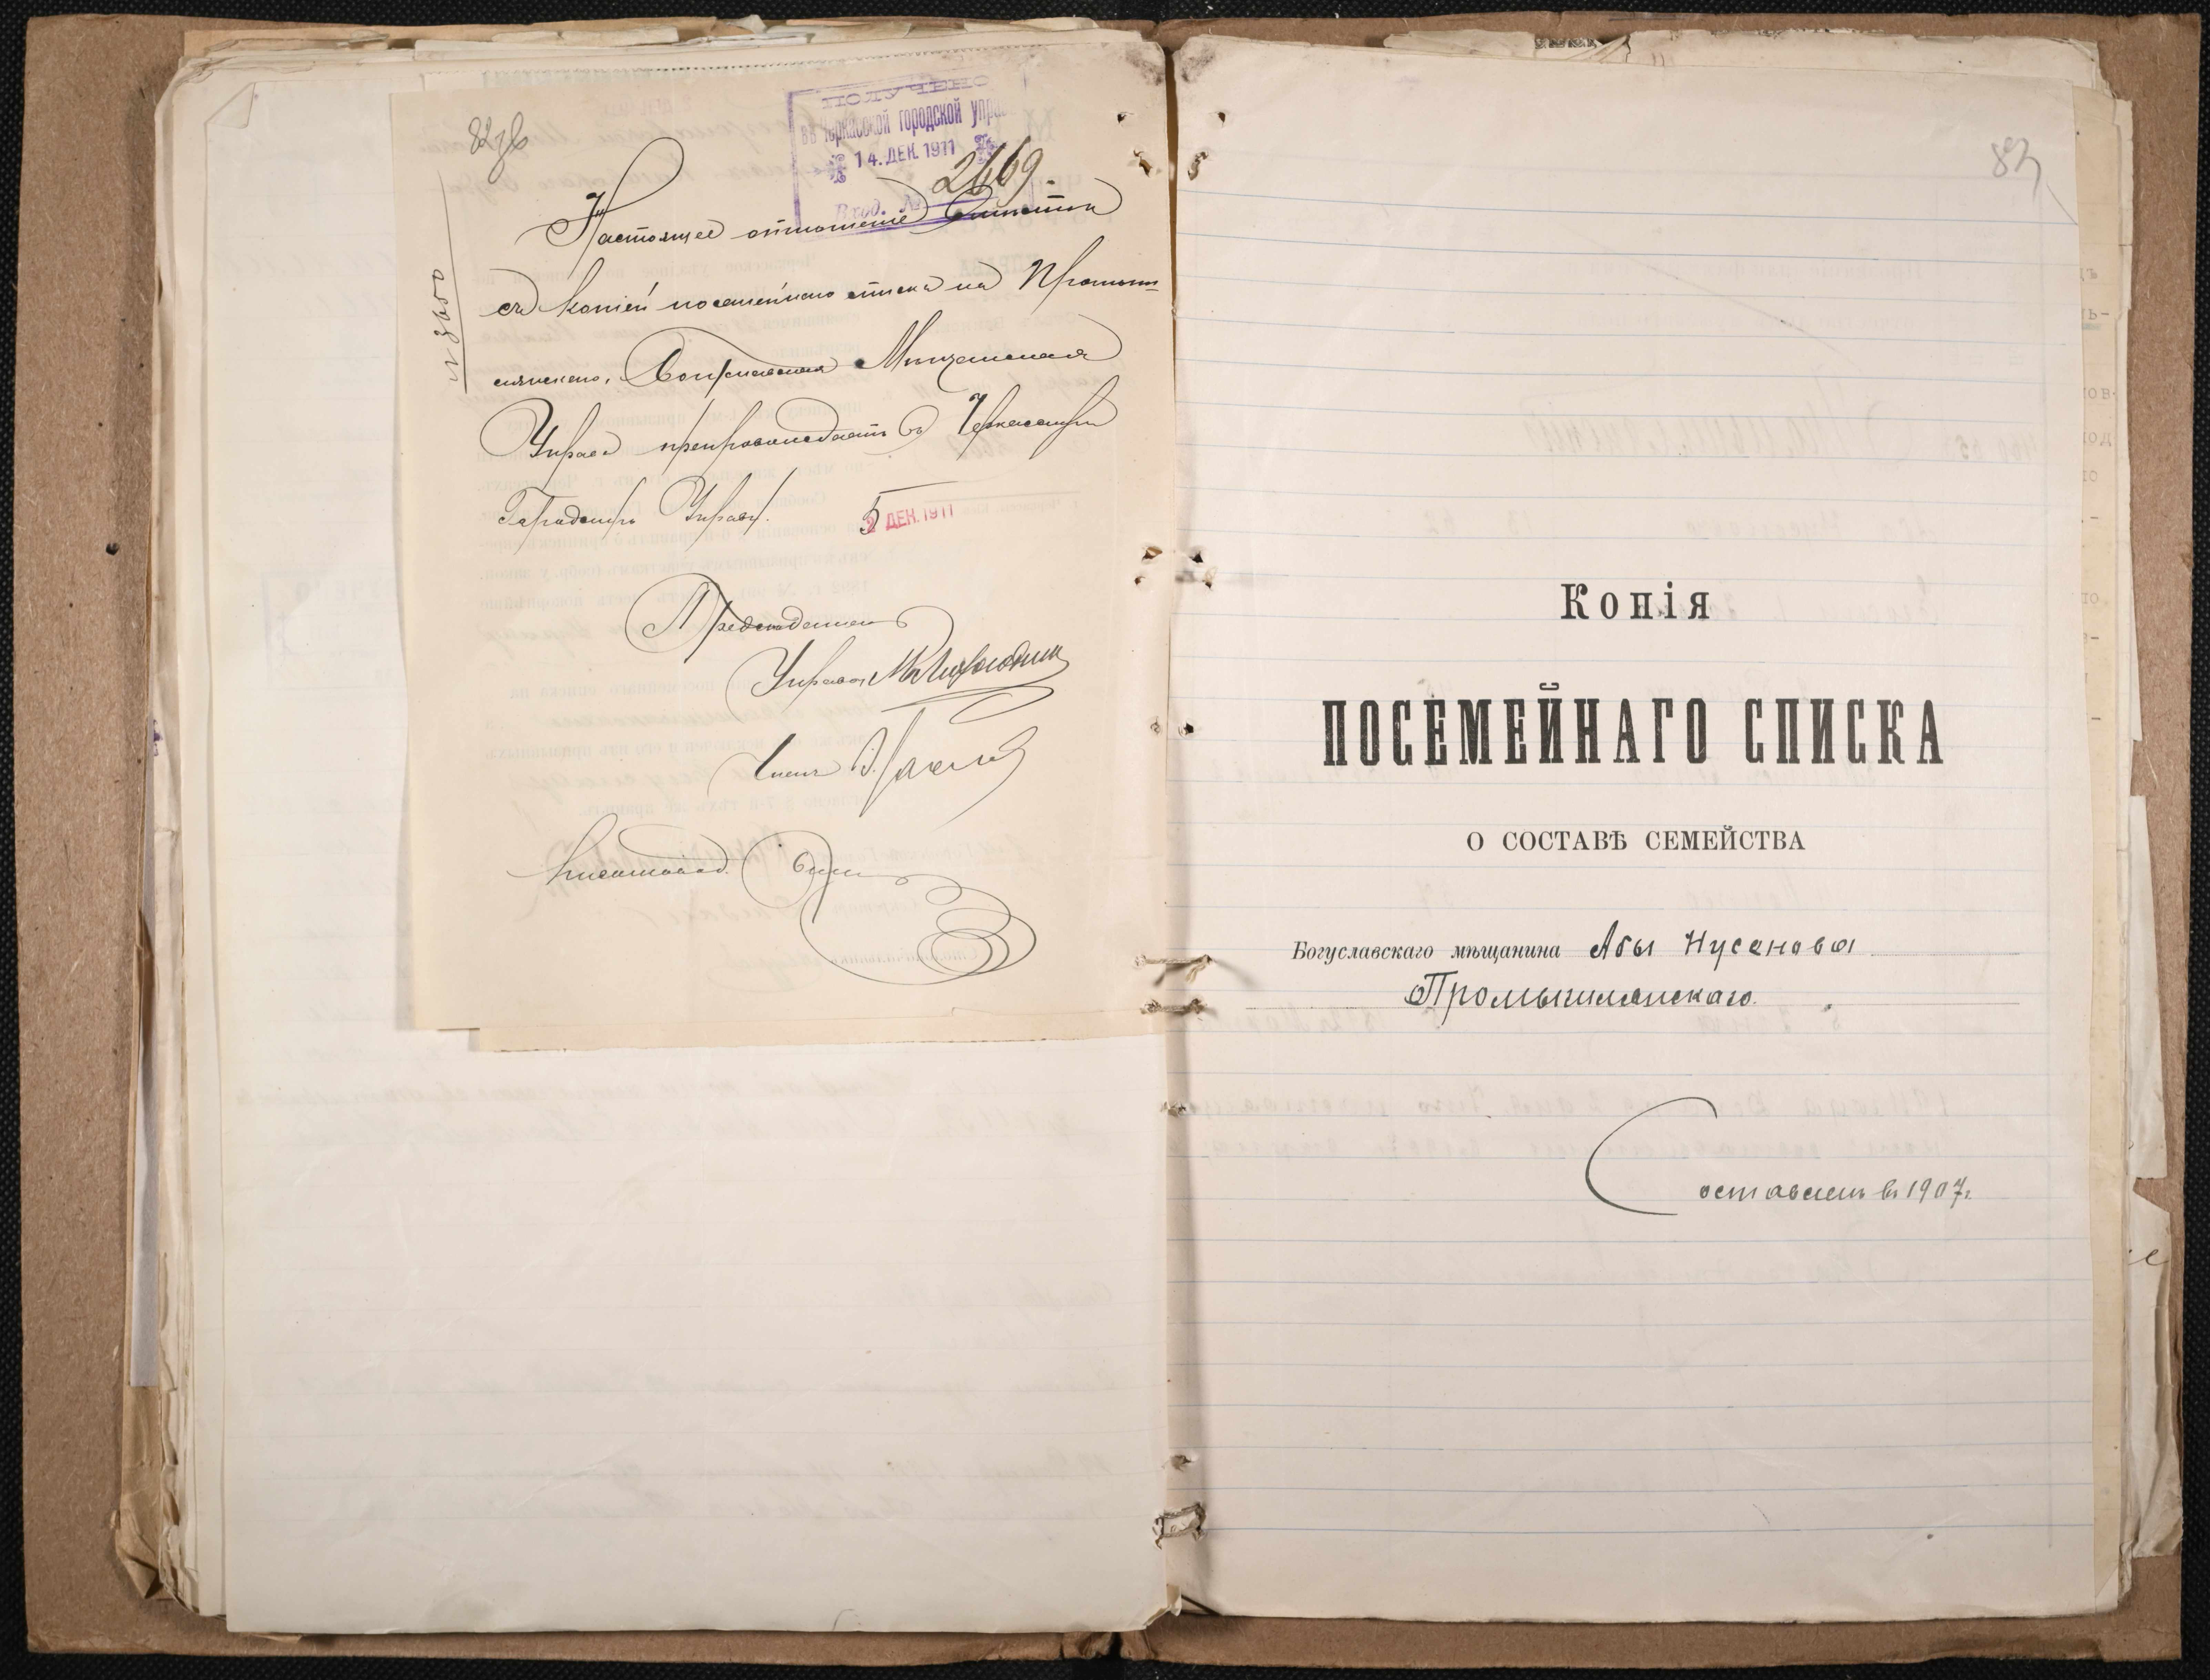 82 об
ПОЛУЧЕНО
въ Черкасской городской управ
14. ДЕК. 1911
Вход. №
2469.
№ 3600
Настоящее отношение вместе
съ копіей посемейнаго списка на Промыш=
лянскаго, Богуславская Мещанская
Управа препровождаетъ въ Черкасскую
Городскую Управу.
5 ДЕК. 1911
Председатель
Управы
Членъ
Письмовод.
83
Копія
ПОСЕМЕЙНАГО СПИСКА
О СОСТАВѢ СЕМЕЙСТВА
Богуславскаго мѣщанина Абы Нусенова
Промышлянскаго.
Составленъ въ 1907 г.